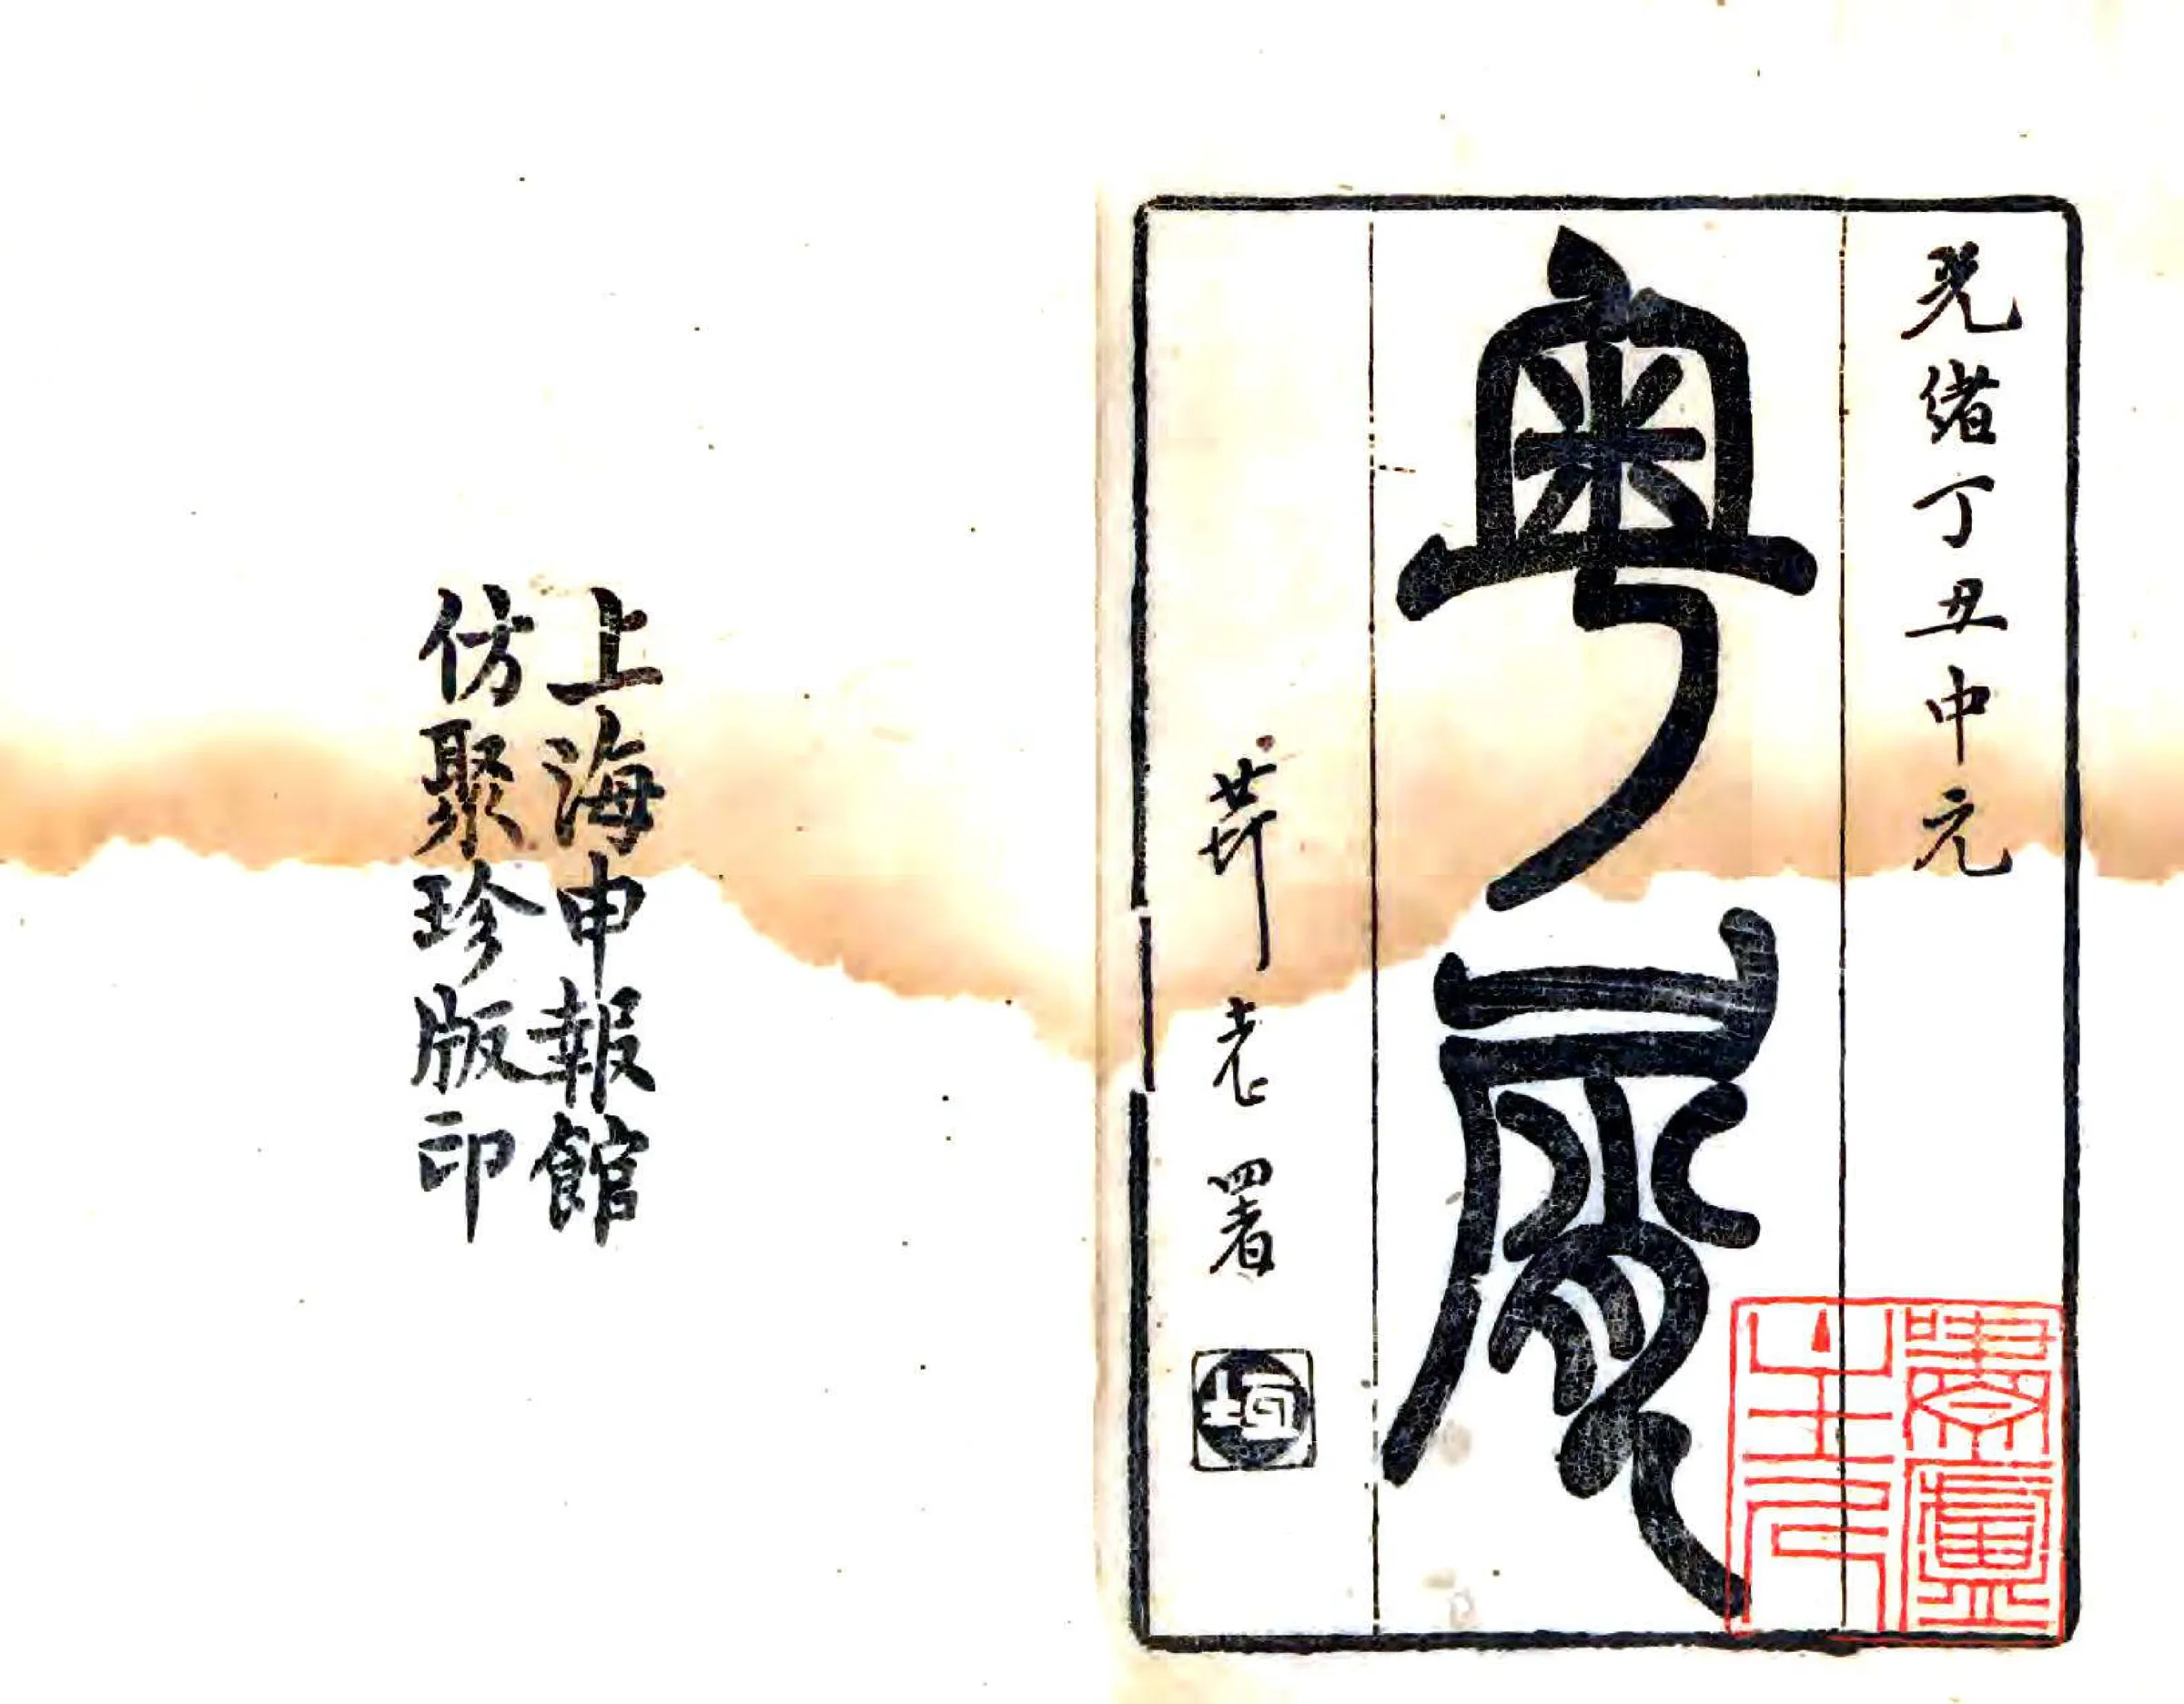 光緒丁丑中元
粵屑
老署
垣
上海申報館
仿聚珍版印